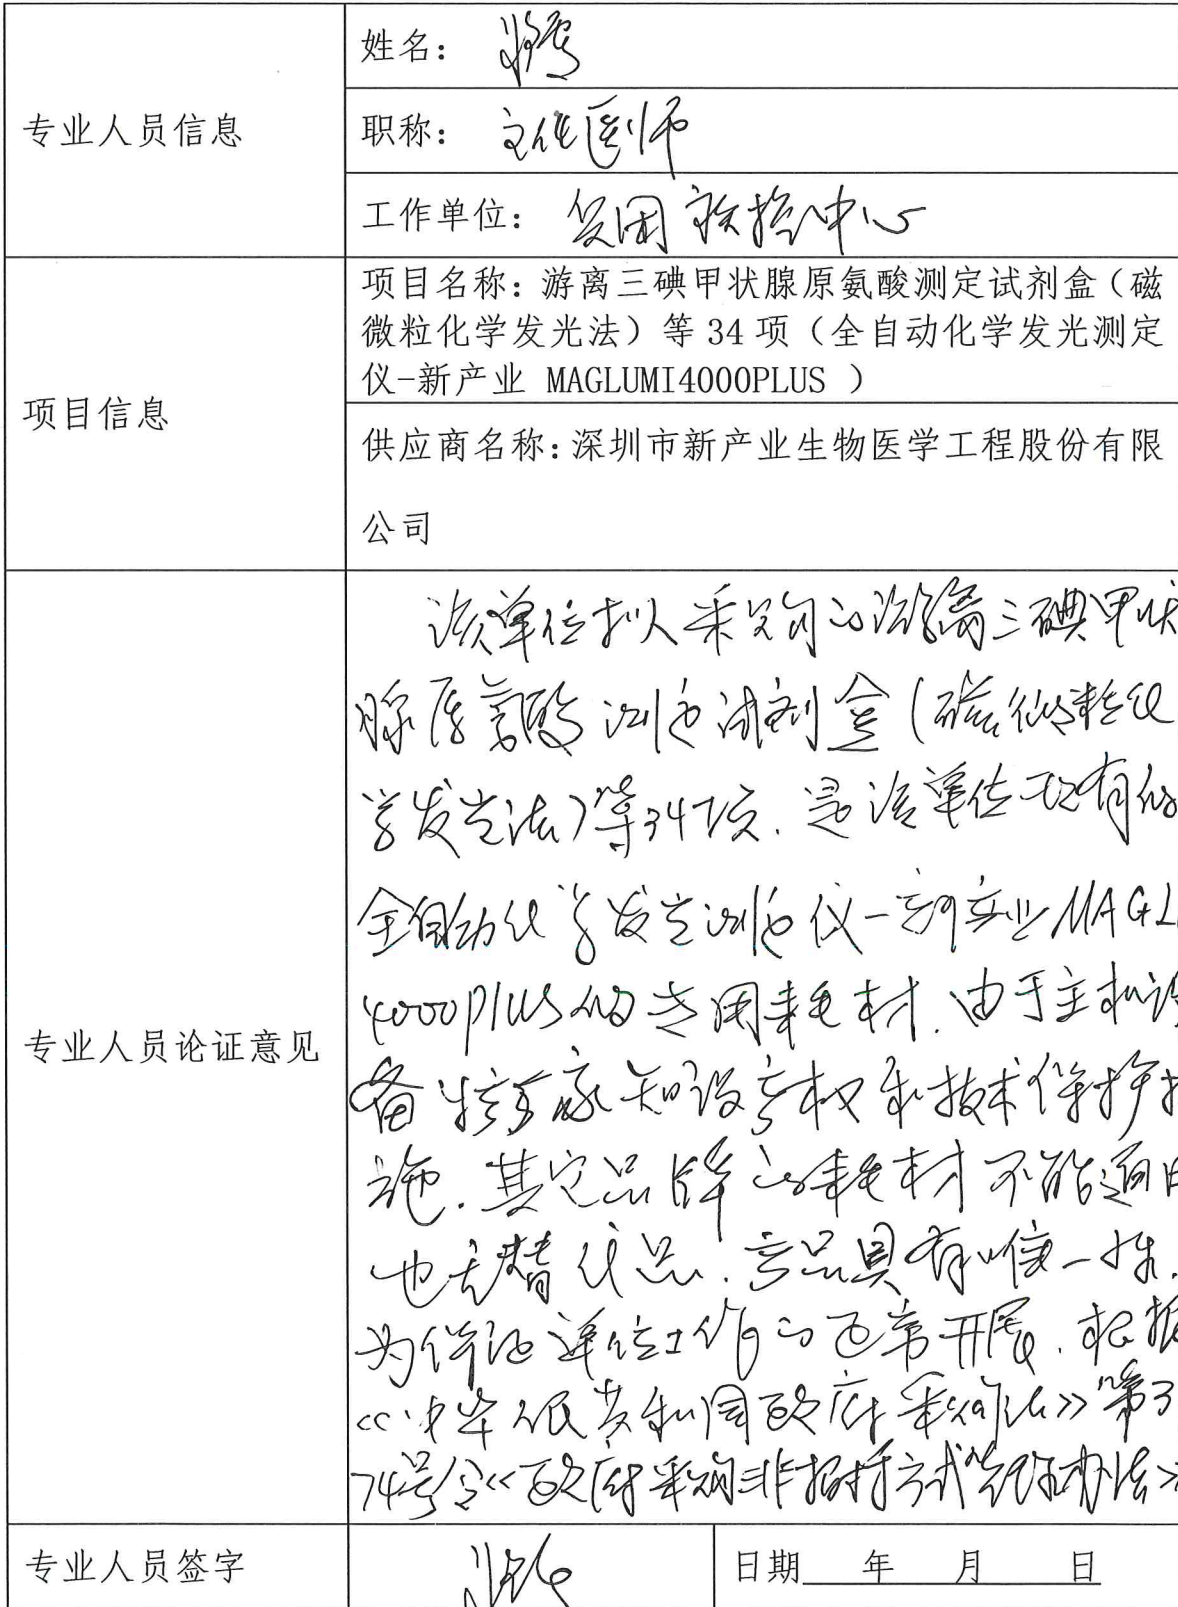 专业人员信息
姓名：
职称：主任医师
工作单位：疾控中心
项目信息
项目名称：游离三碘甲状腺原氨酸测定试剂盒（磁
微粒化学发光法）等34项（全自动化学发光测定
仪-新产业 MAGLUMI4000PLUS ）
供应商名称：深圳市新产业生物医学工程股份有限
公司
专业人员论证意见
该单位拟采购的游离三碘甲状
腺原氨酸测定试剂盒（磁微粒化
学发光法）等34项，是该单位现有的
全自动化学发光测定仪-新产业MAGL
4000PLUS的专用耗材，由于主机设
备 厂家知识产权和技术保护措
施，其它品牌的耗材不能通用
也无替代品，产品具有唯一性，
为保证单位工作的正常开展，根据
《中华人民共和国政府采购法》第3
74号令《政府采购非招标方式管理办法》
专业人员签字
日期 年 月 日